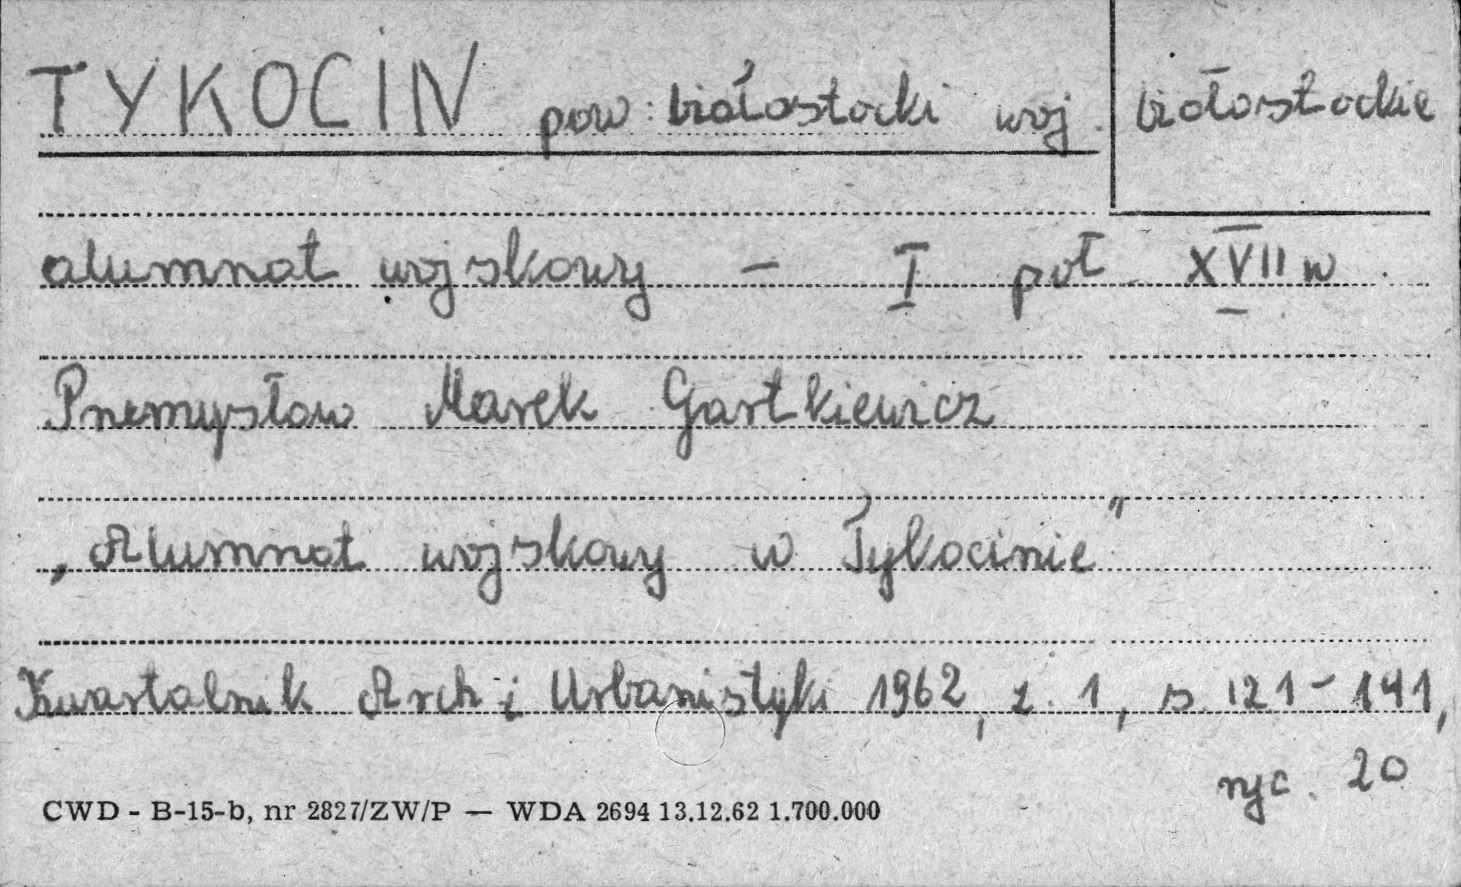 TYKOCIN pow. białostocki woj. białostockie
alumnat wojskowy - I poł XVII w.
Przemysław Marek Gartkiewicz
„Alumnat wojskowy w Tykocinie"
Kwartalnik Arch i Urbanistyki 1962, z. 1, s. 121-141,
ryc. 20
CWD - B-15-b, nr 2827/ZW/P — WDA 2694 13.12.62 1.700.000